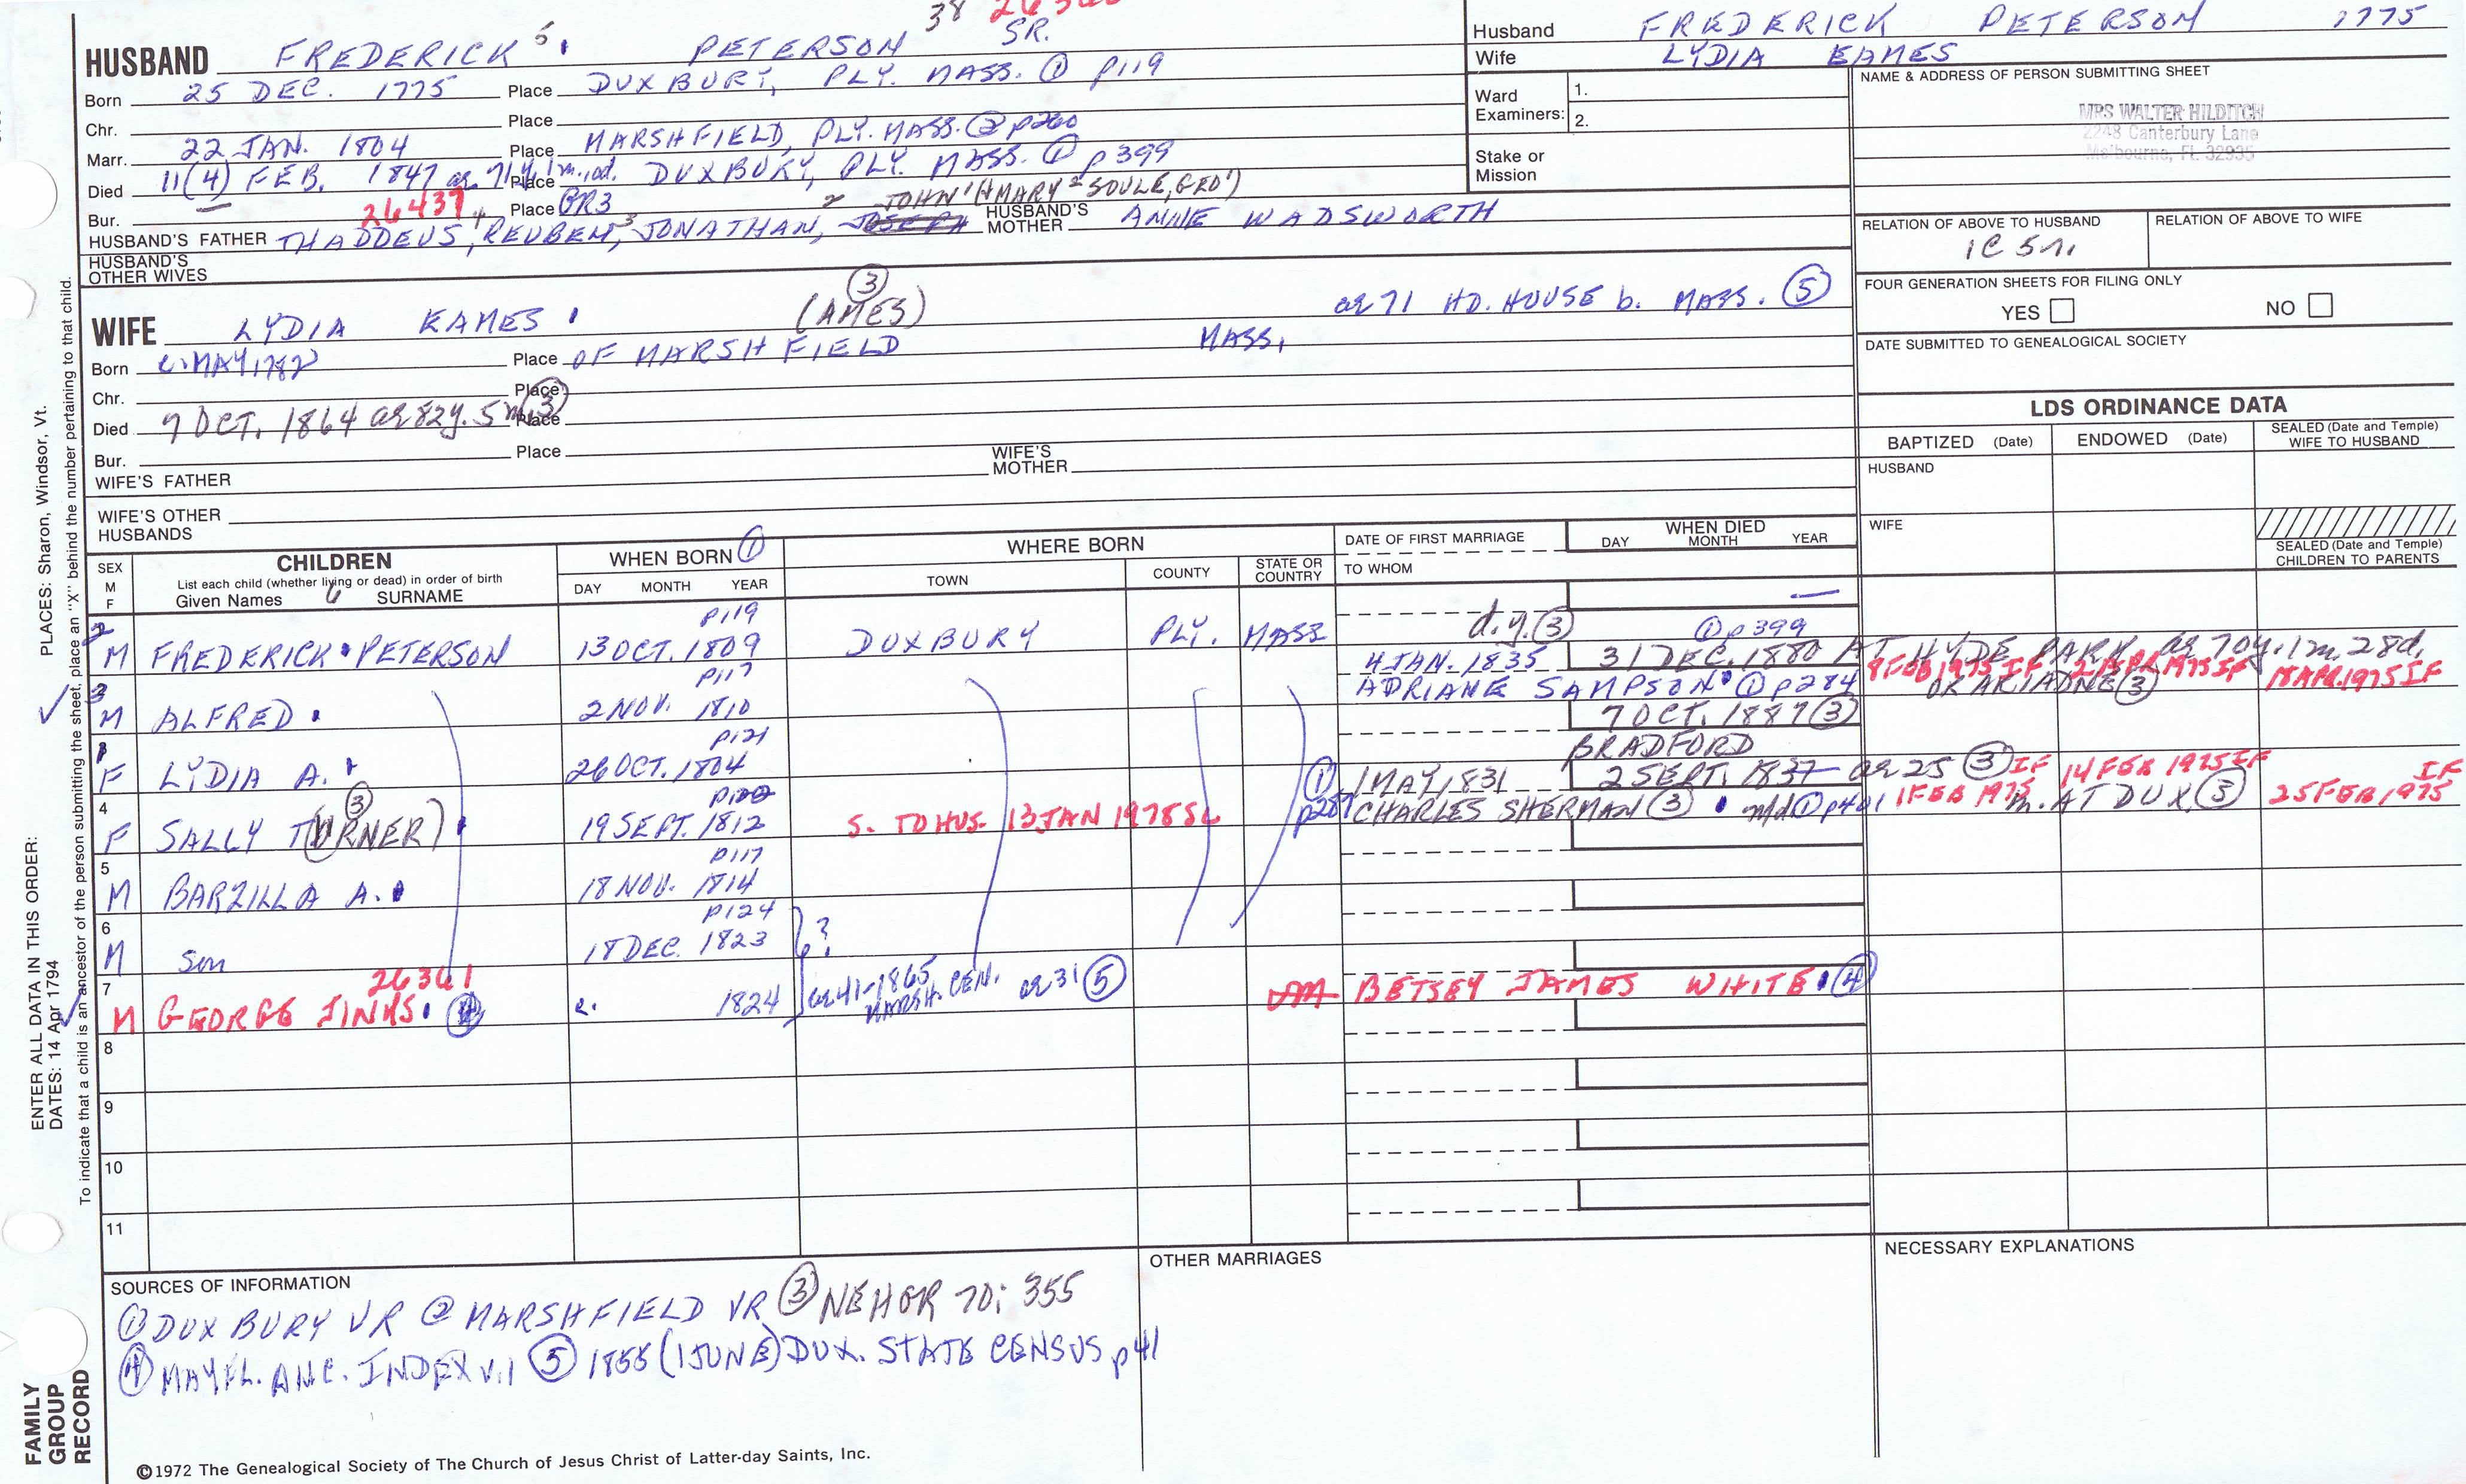 38
HUSBAND FREDERICK 5 PETERSON SR.
Born 25 DEC. 1775 Place DUXBURY, PLY. MASS. ① p119
Chr. Place
Marr. 22 JAN. 1804 Place MARSHFIELD, PLY. MASS. ② p260
Died 11(4) FEB. 1847 ae 71y. 1m. Place DUXBURY, PLY. MASS. ① p399
Bur. 26437 Place GR3 JOHN 1 (+MARY 2 SOULE, GEO 1)
HUSBAND'S FATHER THADDEUS 4, REUBEN 3, JONATHAN, JOSEPH HUSBAND'S MOTHER ANNE WADSWORTH
HUSBAND'S OTHER WIVES
WIFE LYDIA EAMES (AMES) ③ ae 71 HD. HOUSE b. MASS. ⑤
Born c. MAY, 1782 Place OF MARSHFIELD MASS.
Chr. Place
Died 7 OCT. 1864 ae 82y. 5m. ③ Place
Bur. Place
WIFE'S FATHER WIFE'S MOTHER
WIFE'S OTHER HUSBANDS
Husband FREDERICK PETERSON 1775
Wife LYDIA EAMES
Ward Examiners: 1.
2.
Stake or Mission
NAME & ADDRESS OF PERSON SUBMITTING SHEET
MRS WALTER HILDITCH
2248 Canterbury Lane
Melbourne, FL 32935
RELATION OF ABOVE TO HUSBAND RELATION OF ABOVE TO WIFE
1C 5r.
FOUR GENERATION SHEETS FOR FILING ONLY
YES NO
DATE SUBMITTED TO GENEALOGICAL SOCIETY
LDS ORDINANCE DATA
BAPTIZED (Date) ENDOWED (Date) SEALED (Date and Temple) WIFE TO HUSBAND
HUSBAND
WIFE
SEALED (Date and Temple) CHILDREN TO PARENTS
SEX M F
CHILDREN
List each child (whether living or dead) in order of birth
Given Names 6 SURNAME
WHEN BORN ①
DAY MONTH YEAR
WHERE BORN
TOWN COUNTY STATE OR COUNTRY
DATE OF FIRST MARRIAGE
TO WHOM
WHEN DIED
DAY MONTH YEAR
2 M FREDERICK PETERSON 13 OCT. 1809 p119 DUXBURY PLY. MASS d.y. ③
3 M ALFRED 2 NOV. 1810 p117 4 JAN. 1835 31 DEC. 1880 ① p399 AT HYDE PARK ae 70y. 1m. 28d.
ADRIANE SAMPSON ① p284 OR ARIADNE ③ 18 APR. 1975 IF
1 F LYDIA A. 26 OCT. 1804 p121 7 OCT. 1887 ③
BRADFORD
4 F SALLY TURNER) ③ 19 SEPT. 1812 S. TO HUS. 13 JAN 1978 SL ① p287 1 MAY, 1831 2 SEPT. 1837 ae 25 ③ IF 14 FEB 1975 IF
CHARLES SHERMAN ③ m/d ① p401 1 FEB 1975 m. AT DUX. ③ 25 FEB 1975 IF
5 M BARZILLA A. 18 NOV. 1814 p117
6 M son 18 DEC. 1823 p124 ?
7 M GEORGE JINKS 26361 ④ c. 1824 ae 41-1865 MARSH. CEN. ae 31 ⑤ BETSEY JAMES WHITE ④
8
9
10
11
SOURCES OF INFORMATION
① DUXBURY VR ② MARSHFIELD VR ③ NEHGR 70: 355
④ MAYFL. ANC. INDEX v.1 ⑤ 1855 (1 JUNE) DUX. STATE CENSUS p41
OTHER MARRIAGES
NECESSARY EXPLANATIONS
©1972 The Genealogical Society of The Church of Jesus Christ of Latter-day Saints, Inc.
FAMILY GROUP RECORD
ENTER ALL DATA IN THIS ORDER:
DATES: 14 Apr 1794
PLACES: Sharon, Windsor, Vt.
To indicate that a child is an ancestor of the person submitting the sheet, place an "X" behind the number pertaining to that child.